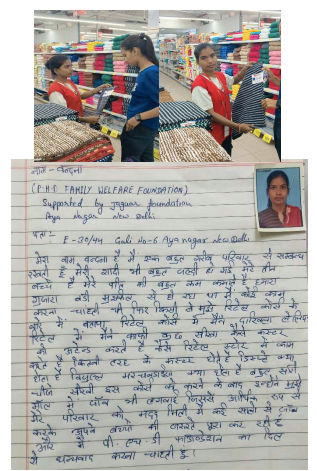 नाम - वन्दना
(P.H.D FAMILY WELFARE FOUNDATION)
Supported by Jaguar foundation
Aya Nagar New Delhi
पता:-
E-30/44 Gali No-6 Aya nagar New Delhi
मेरा नाम वन्दना है मैं एक बहुत गरीब परिवार से सम्बन्ध
रखती हूँ मेरी शादी भी बहुत जल्दी हो गई मेरे तीन
बच्चे हैं मेरे पति की बहुत कम कमाई है हमारा
गुजारा बड़ी मुश्किल से हो रहा था मैं कोई काम
करना चाहती थी फिर किसी ने मुझे रिटेल कोर्स के
बारे में बताया रिटेल कोर्स में मैंने दाखिला ले लिया
रिटेल में मैंने काफी कुछ सीखा कैसे कस्टमर
को अटेन्ड करते हैं कैसे रिटेल स्टोर में काम
करते हैं कितनी तरह के कस्टमर होते हैं डिस्प्ले क्या
होता है विजुअल मरचन्डाइजिंग क्या होता है बहुत सारी
चीजें सीखी इस कोर्स को करने के बाद इन्होंने मुझे
मॉल में जॉब भी लगवाई जिससे आर्थिक रूप से
मेरे परिवार को मदद मिली मैं कई सालों से जॉब
करके अपने बच्चों की जरूरतें पूरा कर रही हूँ
और मैं पी. एच. डी फाउन्डेशन का दिल
से धन्यवाद करना चाहती हूँ।